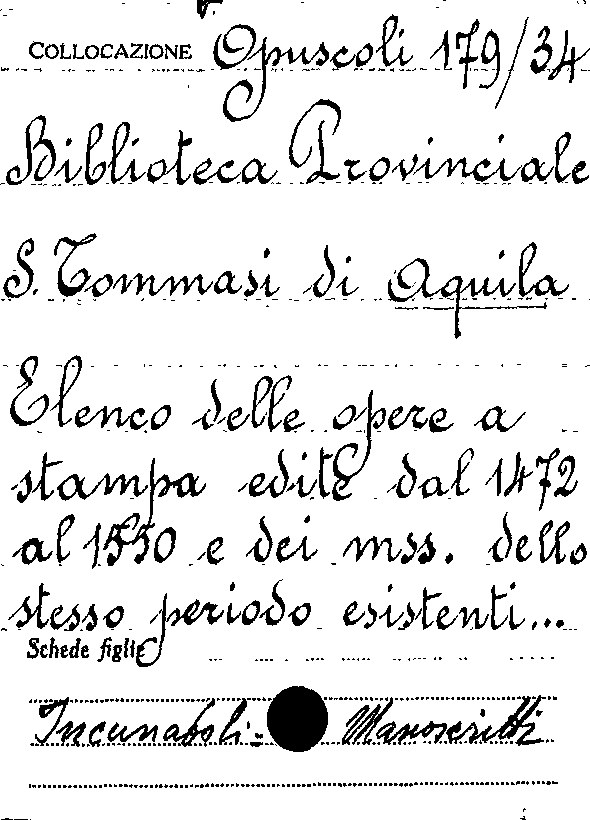 COLLOCAZIONE Opuscoli 179/34
Biblioteca Provinciale
S. Tommasi di Aquila
Elenco delle opere a
stampa edite dal 1472
al 1530 e dei mss. dello
stesso periodo esistenti...
Schede figlie
Incunaboli - Manoscritti